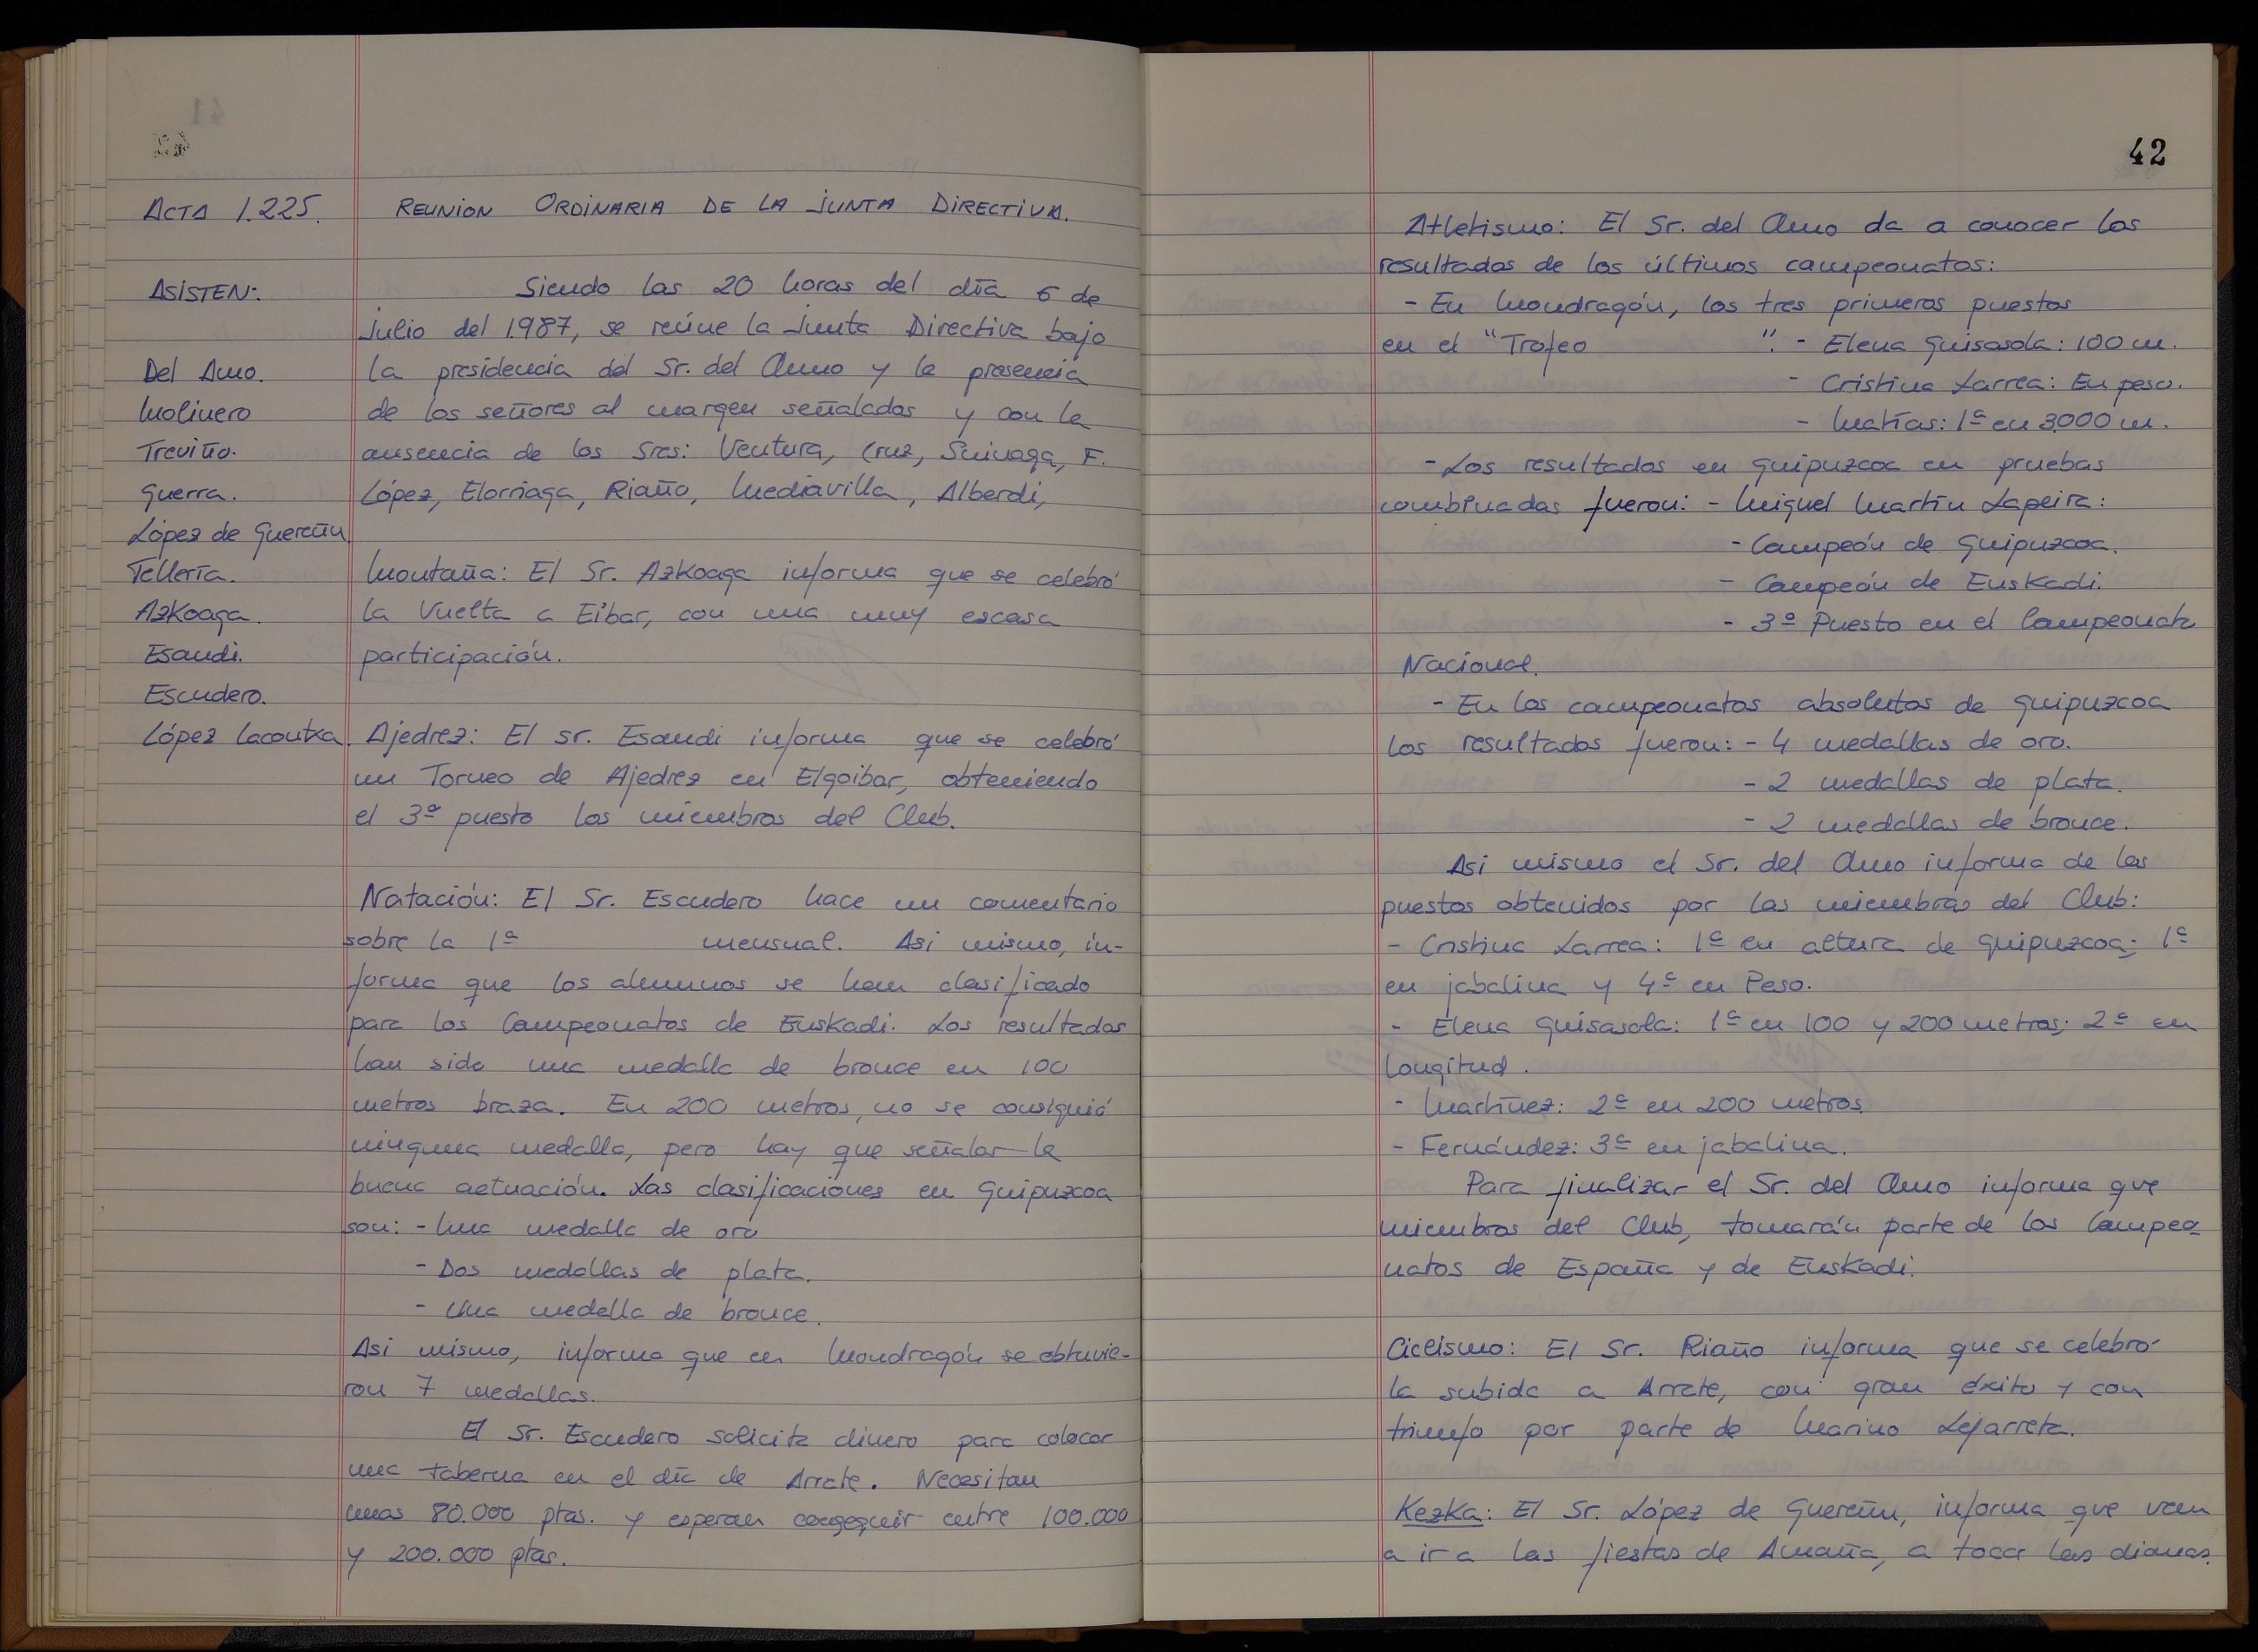 ACTA 1.225.
REUNION ORDINARIA DE LA JUNTA DIRECTIVA.
ASISTEN:
Del Amo.
Molinero
Treviño.
Guerra.
López de Guereñu
Tellería.
Azkoaga.
Esandi.
Escudero.
López Lacoutxa.
Siendo las 20 horas del día 6 de
Julio del 1.987, se reúne la Junta Directiva bajo
la presidencia del Sr. del Amo y la presencia
de los señores al margen señalados y con la
ausencia de los Sres: Ventura, Cruz, Suinaga, F.
López, Elorriaga, Riaño, Mediavilla, Alberdi,
Montaña: El Sr. Azkoaga informa que se celebró
la Vuelta a Eibar, con una muy escasa
participación.
Ajedrez: El sr. Esandi informa que se celebró
un Torneo de Ajedrez en Elgoibar, obteniendo
el 3º puesto los miembros del Club.
Natación: El Sr. Escudero hace un comentario
sobre la 1ª mensual. Asi mismo, in-
forma que los alumnos se han clasificado
para los Campeonatos de Euskadi. Los resultados
han sido una medalla de bronce en 100
metros braza. En 200 metros, no se consiguió
ninguna medalla, pero hay que señalar la
buena actuación. Las clasificaciones en Guipuzcoa
son: - Una medalla de oro
- Dos medallas de plata.
- Una medalla de bronce.
Asi mismo, informa que en Mondragón se obtuvie-
ron 7 medallas.
El Sr. Escudero solicita dinero para colocar
una taberna en el día de Arrate. Necesitan
unas 80.000 ptas. y esperan conseguir entre 100.000
y 200.000 ptas.
42
Atletismo: El Sr. del Amo da a conocer los
resultados de los últimos campeonatos:
- En Mondragón, los tres primeros puestos
en el "Trofeo ". - Elena Guisasola: 100 m.
- Cristina Larrea: En peso.
- Matías: 1ª en 3.000 m.
- Los resultados en Guipuzcoa en pruebas
combinadas fueron: - Miguel Martín Lapeira:
- Campeón de Guipuzcoa.
- Campeón de Euskadi.
- 3º Puesto en el Campeonato
Nacional.
- En los campeonatos absolutos de Guipuzcoa
los resultados fueron: - 4 medallas de oro.
- 2 medallas de plata.
- 2 medallas de bronce.
Asi mismo el Sr. del Amo informa de los
puestos obtenidos por los miembros del Club:
- Cristina Larrea: 1ª en altura de Guipuzcoa; 1ª
en jabalina y 4ª en Peso.
- Elena Guisasola: 1ª en 100 y 200 metros; 2ª en
Longitud.
- Martínez: 2ª en 200 metros.
- Fernández: 3ª en jabalina.
Para finalizar el Sr. del Amo informa que
miembros del Club, tomarán parte de los Campeo-
natos de España y de Euskadi.
Ciclismo: El Sr. Riaño informa que se celebró
la subida a Arrate, con gran éxito y con
triunfo por parte de Marino Lejarreta.
Kezka: El Sr. López de Guereñu, informa que van
a ir a las fiestas de Amaña, a tocar las dianas.